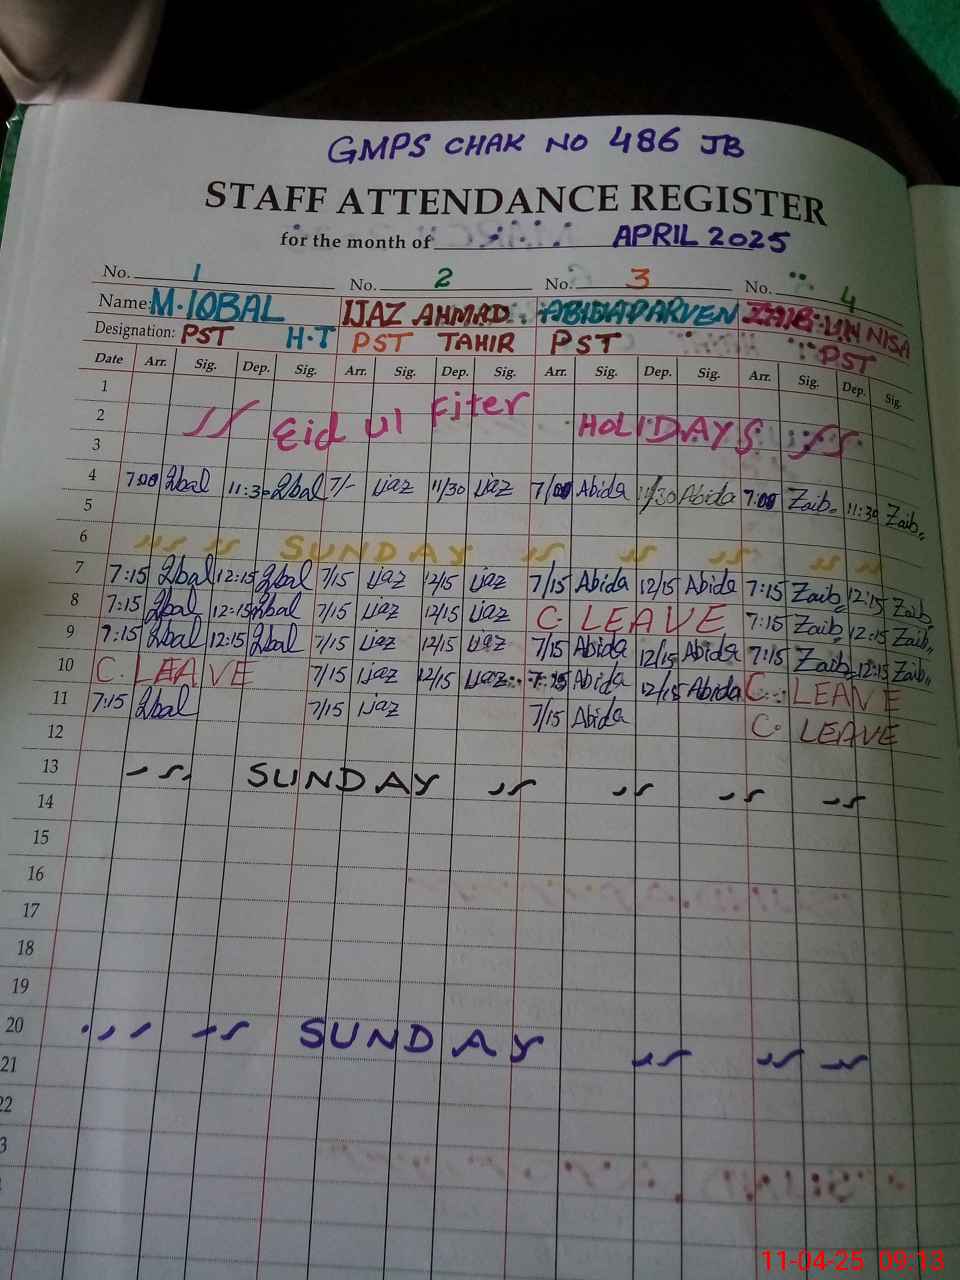 GMPS CHAK NO 486 JB
STAFF ATTENDANCE REGISTER
for the month of APRIL 2025
No. 1 No. 2 No. 3 No. 4
Name: M. IQBAL IJAZ AHMAD. ABIDA PARVEN ZAIB-UN NISA
Designation: PST H.T PST TAHIR PST PST
Date Arr. Sig. Dep. Sig. Arr. Sig. Dep. Sig. Arr. Sig. Dep. Sig. Arr. Sig. Dep. Sig.
1
2 Eid ul Fiter HOLIDAYS
3
4 7:00 Iqbal 11:30 Iqbal 7/- ijaz 11/30 ijaz 7/00 Abida 11/30 Abida 7:00 Zaib 11:30 Zaib
5
6 SUNDAY
7 7:15 Iqbal 12:15 Iqbal 7/15 ijaz 12/15 ijaz 7/15 Abida 12/15 Abida 7:15 Zaib 12:15 Zaib
8 7:15 Iqbal 12:15 Iqbal 7/15 ijaz 12/15 ijaz C. LEAVE 7:15 Zaib 12:15 Zaib
9 7:15 Iqbal 12:15 Iqbal 7/15 ijaz 12/15 ijaz 7/15 Abida 12/15 Abida 7:15 Zaib 12:15 Zaib
10 C. LEAVE 7/15 ijaz 12/15 ijaz 7:15 Abida 12/15 Abida C. LEAVE
11 7:15 Iqbal 7/15 ijaz 7/15 Abida C. LEAVE
12
13 SUNDAY
14
15
16
17
18
19
20 SUNDAY
21
22
3
11-04-25 09:13